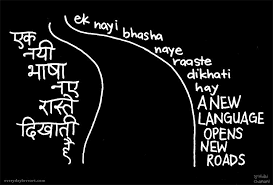 एक
नयी
भाषा
नए
रास्ते
दिखाती
है
ek nayi bhasha naye raaste dikhati hay
A NEW
LANGUAGE
OPENS
NEW
ROADS